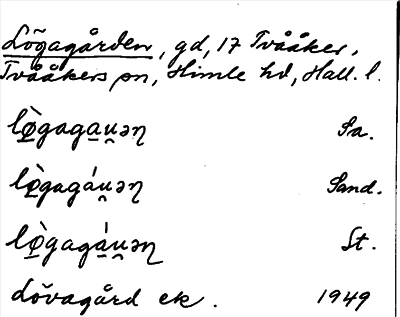 Lögagården, gd, 17 Tvååker,
Tvååkers sn, Himle hd, Hall. l.
lø̀gagau̯əɳ Sa.
lø̀gagáu̯əɳ Sand.
lø̀gagáu̯əɳ St.
Lövagård ek. 1949